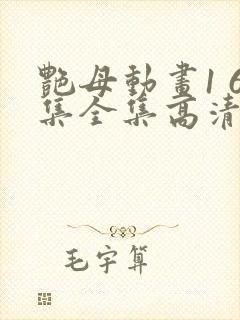 艷母動畫16
集全集高清
毛宇算